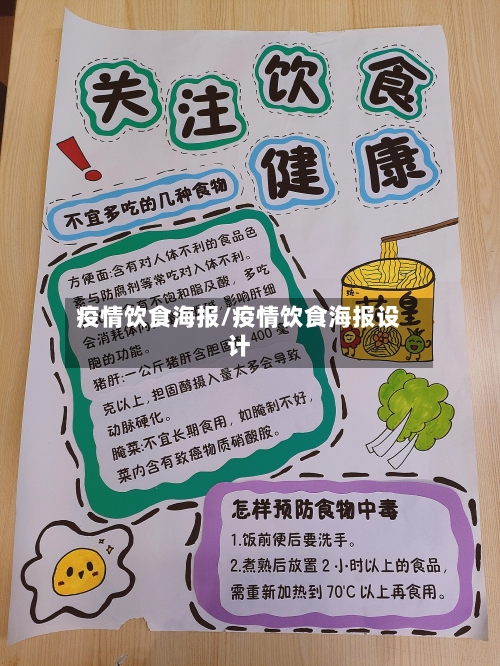 关注饮食
健康
不宜多吃的几种食物
方便面:含有对人体不利的食品色
素与防腐剂等常吃对人体不利。
有不饱和脂及酸，多吃
会消耗体内
影响肝细
胞的功能。
疫情饮食海报/疫情饮食海报设
计
猪肝:一公斤猪肝含胆固
400毫
克以上,担固醇摄入量太多会导致
动脉硬化。
腌菜:不宜长期食用，如腌制不好，
菜内含有致癌物质硝酸胺。
皇
怎样预防食物中毒
1.饭前便后要洗手。
2.煮熟后放置2小时以上的食品，
需重新加热到70℃以上再食用。